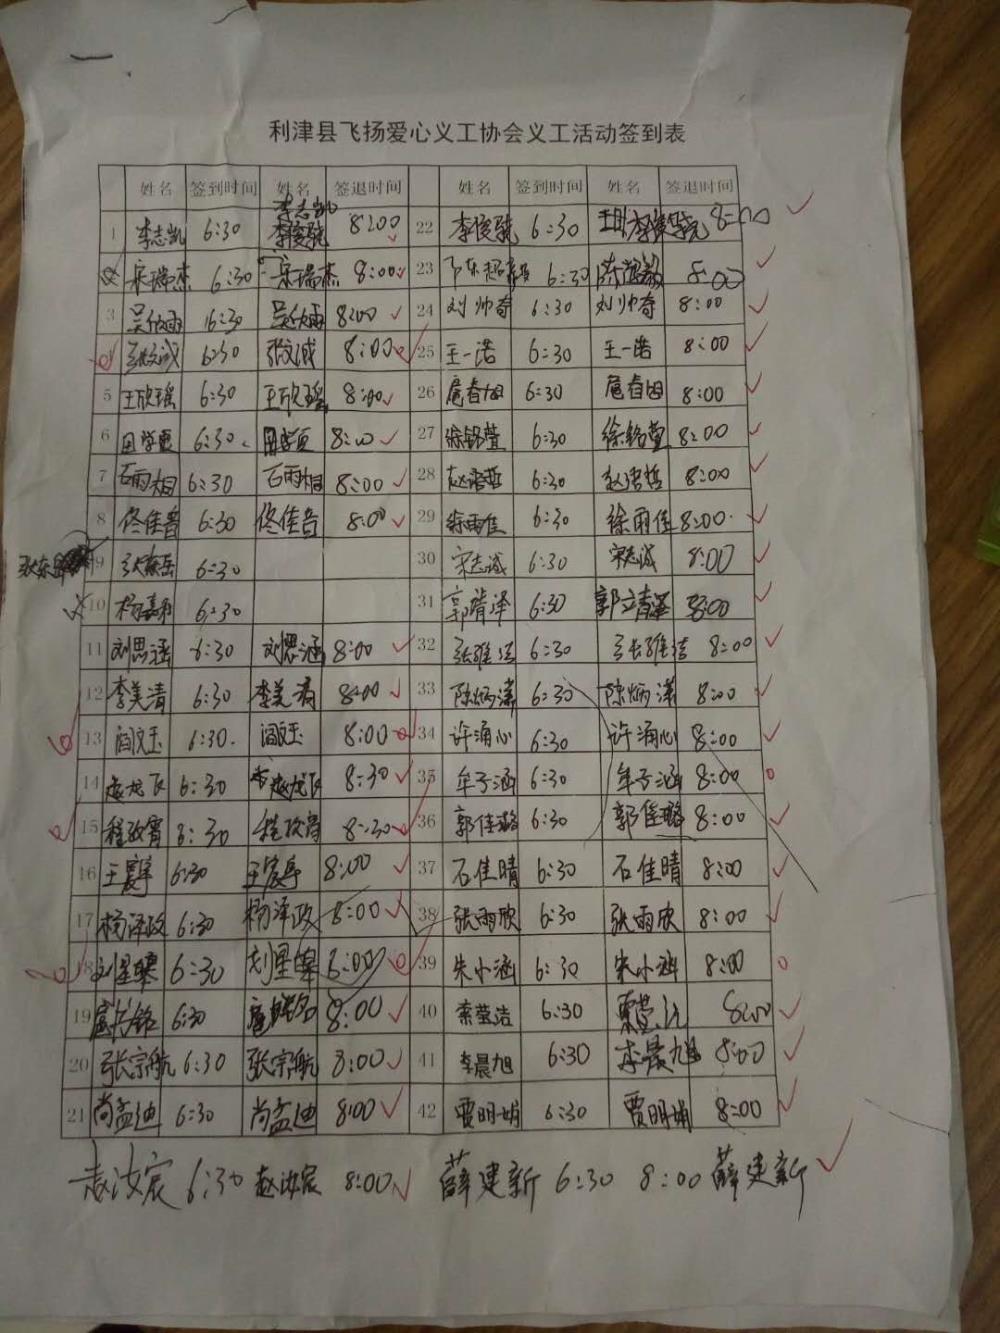 利津县飞扬爱心义工协会义工活动签到表
姓名 签到时间 姓名 签退时间 姓名 签到时间 姓名 签退时间
李志凯
1 李志凯 6:30 李俊骁 8:00 22 李俊骁 6:30 李俊骁 8:00
宋瑞杰 6:30 宋瑞杰 8:00 23 6:30 8:00
3 吴欣雨 6:30 吴欣雨 8:00 24 刘帅奇 6:30 刘帅奇 8:00
张文诚 6:30 张文诚 8:00 25 王一诺 6:30 王一诺 8:00
5 王欣瑶 6:30 王欣瑶 8:00 26 扈春旭 6:30 扈春旭 8:00
6 6:30 8:00 27 徐铭萱 6:30 徐铭萱 8:00
7 石雨桐 6:30 石雨桐 8:00 28 赵诺哲 6:30 赵诺哲 8:00
8 佟佳音 6:30 佟佳音 8:00 29 徐雨佳 6:30 徐雨佳 8:00
张东岳 9 张东岳 6:30 30 宋志诚 6:30 宋志诚 8:00
10 杨嘉和 6:30 31 郭靖泽 6:30 郭靖泽 8:00
11 刘思涵 6:30 刘思涵 8:00 32 张雅洁 6:30 张雅洁 8:00
12 李美清 6:30 李美清 8:00 33 陈炳泽 6:30 陈炳泽 8:00
13 闫文玉 6:30 闫文玉 8:00 34 许涌心 6:30 许涌心 8:00
14 赵龙飞 6:30 赵龙飞 8:30 35 牟子涵 6:30 牟子涵 8:00
15 程政霄 6:30 程政霄 8:30 36 郭佳璐 6:30 郭佳璐 8:00
16 王寰宇 6:30 王寰宇 8:00 37 石佳晴 6:30 石佳晴 8:00
17 杨泽政 6:30 杨泽政 8:00 38 张雨欣 6:30 张雨欣 8:00
18 刘星皞 6:30 刘星皞 8:00 39 朱小涵 6:30 朱小涵 8:00
19 扈书铭 6:30 扈书铭 8:00 40 索莹洁 6:30 索莹洁 8:00
20 张宗航 6:30 张宗航 8:00 41 李晨旭 6:30 李晨旭 8:00
21 尚孟迪 6:30 尚孟迪 8:00 42 贾明娟 6:30 贾明娟 8:00
赵汝宸 6:30 赵汝宸 8:00 薛建新 6:30 8:00 薛建新